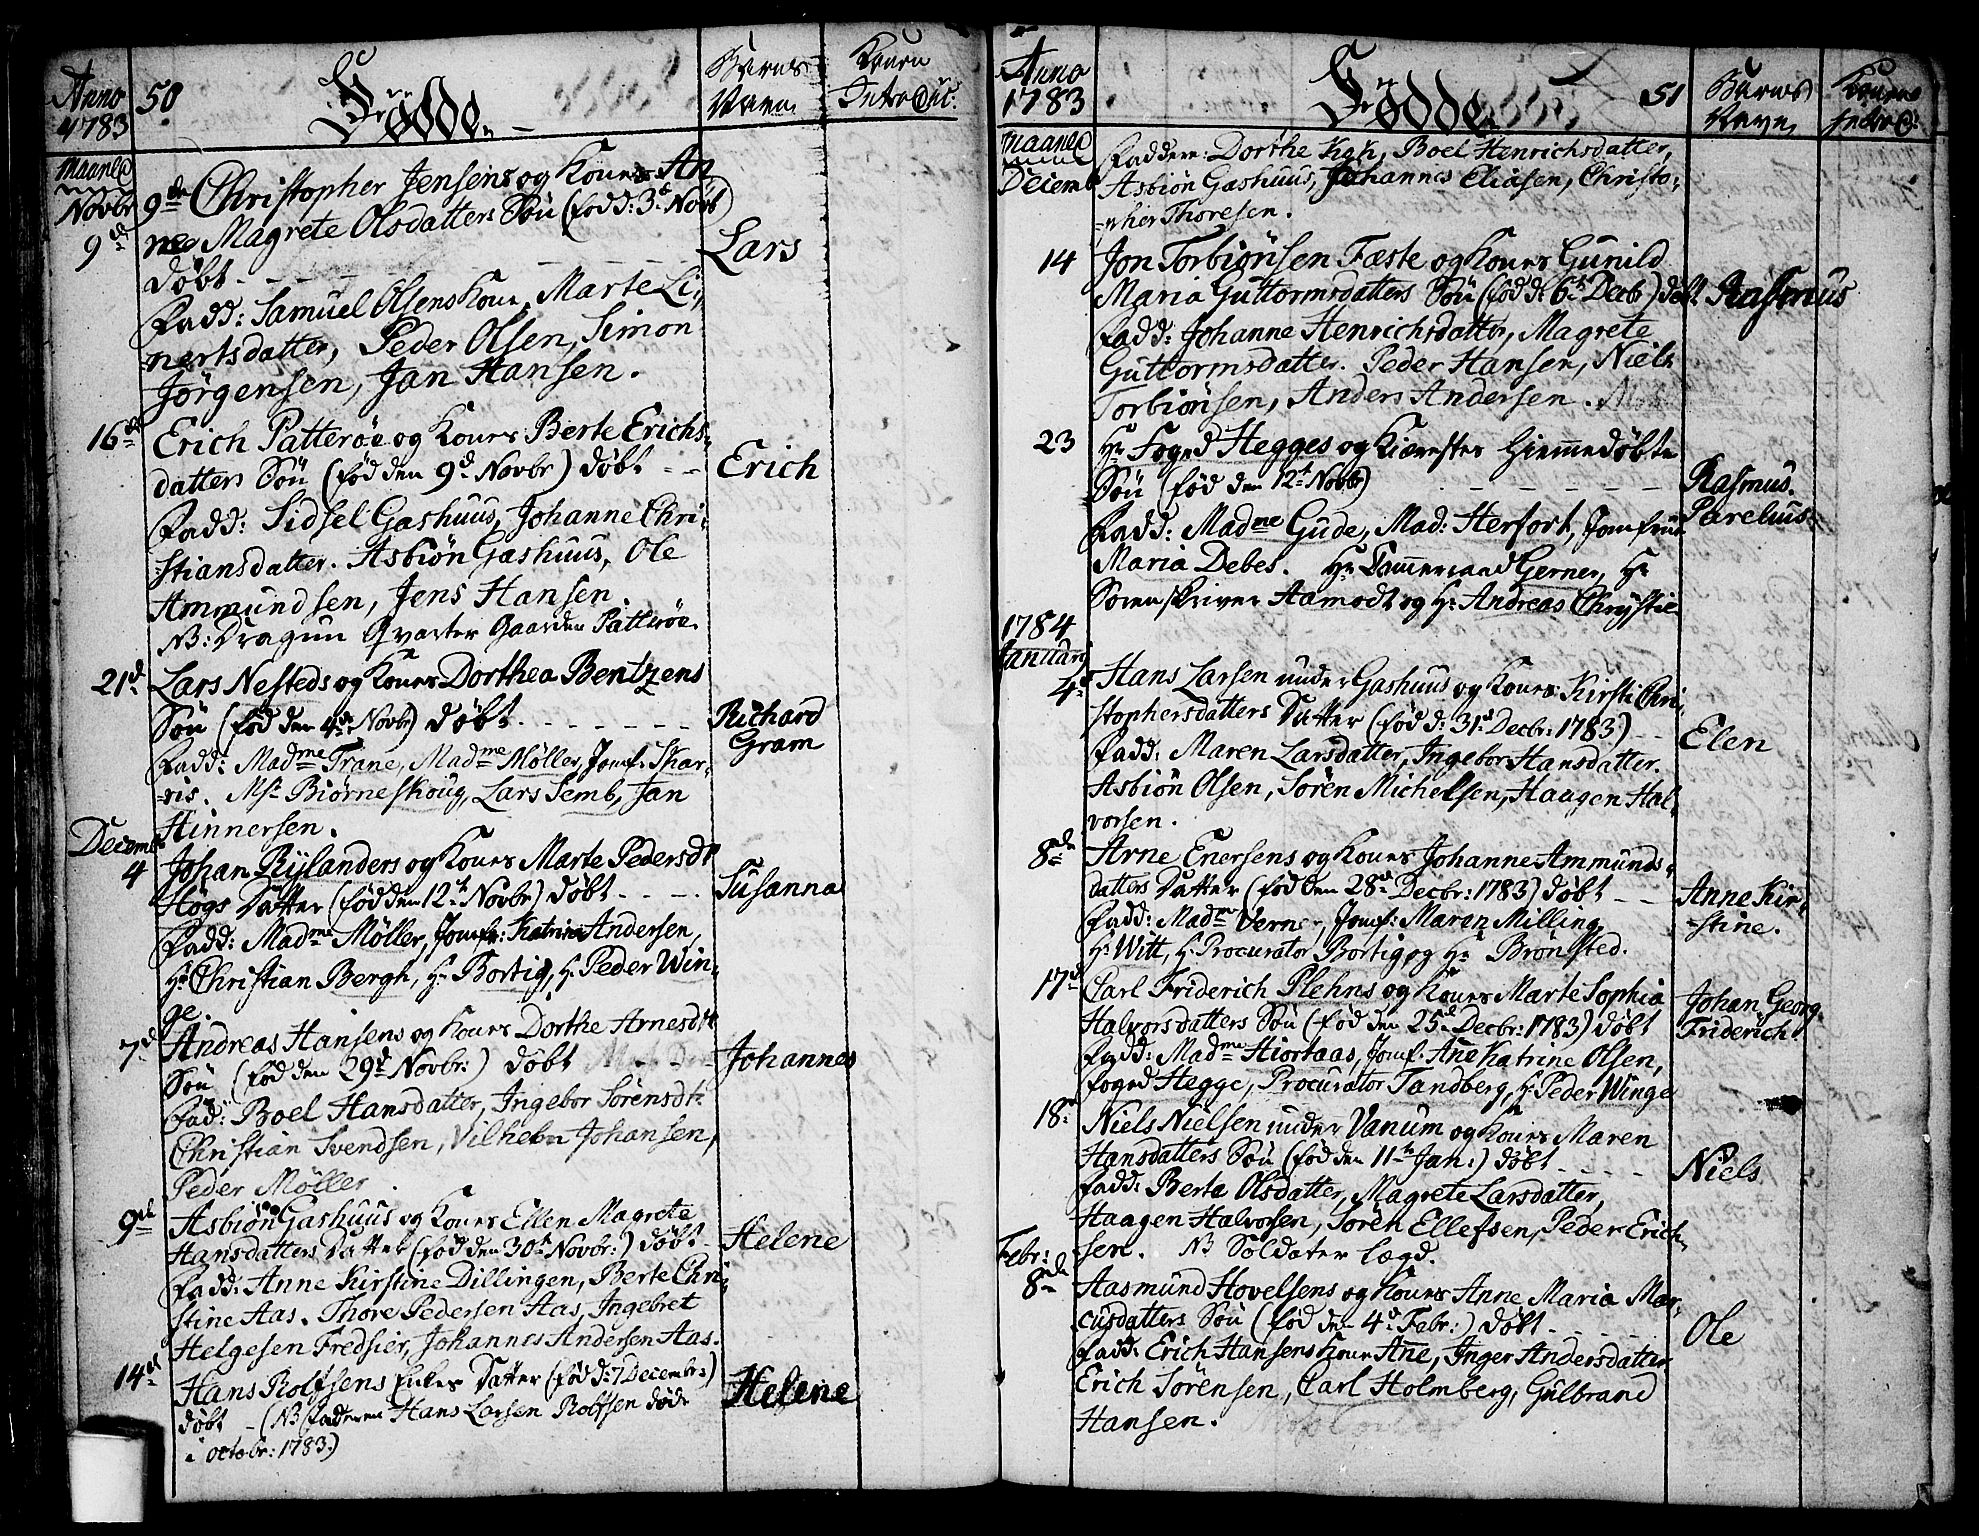 Anno 1783
50
Fødde
Barnets Navn
Konens Introduc:
Maaned
Novbr
9de Christopher Jensens og Kones An
ne Magrete Olsdatters Søn (fød d: 3d Novb)
døbt
Lars
Fadd: Samuel Olsens Kone, Marte Li-
nertsdatter, Peder Olsen, Simon
Jörgensen, Jan Hansen.
16de Erich Patterøe og Kones Berte Erichs-
datters Søn (fød den 9d Novbr) døbt
Erich
Fadd: Sidsel Gashuus, Johanne Chri-
stiansdatter. Asbiön Gashuus, Ole
Ammundsen, Jens Hansen.
NB: Dragun Qvarter Gaarden Patterøe.
21d Lars Nesteds og Kones Dorthea Bentzens
Søn (fød den 4de Novbr) døbt
Richard Gram
Fadd: Madme Trane, Madme Møller, Jomf. Skar-
ris. Msr Biørneskoug, Lars Semb, Jan
Hinnersen.
Decembr
4 Johan Rÿlanders og Kones Marte Pedersdtr
Högs Datter (fød den 12te Novbr) døbt
Susanna
Fadd: Madme Møller, Jomfr: Katrine Andersen,
Hr Christian Bergh, Hr Bortig, Hr Peder Win-
ge.
7d Andreas Hansens og Kones Dorthe Arnesdtr
Søn (fød den 29d Novbr:) døbt
Johannes
Fad: Boel Hansdatter, Ingebor Sörensdtr
Christian Svendsen, Vilhelm Johansen,
Peder Møller.
9de Asbiön Gashuus og Kones Ellen Magrete
Hansdatters Datter (fød den 30te Novbr:) døbt
Helene
Fadd: Anne Kirstine Dillingen, Berte Chri-
stine Aas. Thore Pedersen Aas, Ingebret
Helgesen Fredsier, Johannes Andersen Aas.
14de Hans Rolfsens Enkes Datter (fød d: 7 Decembr:)
Helene
døbt (NB Faderen Hans Larsen Rolfsen døde
i octobr: 1783)
Anno 1783
Fødde
51
Barnets Navn
Konens Introd:
Maaned
Decemb
Faddere: Dorthe Kok, Boel Henrichsdatter,
Asbiön Gashuus, Johannes Eliasen, Christo-
pher Thoresen.
14 Jon Torbiönsen Fæste og Kones Gunild
Maria Guttormsdatters Søn (fød d: 6te Decbr) døbt
Rasmus
Fadd: Johanne Henrichsdatter, Magrete
Guttormsdatter. Peder Hansen, Niels
Torbiönsen, Anders Andersen.
23 Hr Foged Hegges og Kiærestes hiemmedøbte
Søn (fød den 12te Novbr)
Rasmus Parelius
Fadd: Madme Gude, Mad: Herfort, Jomfrue
Maria Debes. Hr Cammerraad Gerner, Hr
Sorenskriver Aamodt og Hr Andreas Chrÿstie
1784
Januarÿ
4d Hans Larsen under Gashuus og Kones Kirsti Chri-
stophersdatters Datter (fød d: 31d Decbr: 1783)
Elen
Fadd: Maren Larsdatter, Ingebor Hansdatter.
Asbiön Olsen, Sören Michelsen, Haagen Hal-
vorsen.
8de Arne Enersens og Kones Johanne Ammunds-
datters Datter (fød den 28d Decbr: 1783) døbt
Anne Kir-
stine.
Fadd: Madme Verne, Jomf: Maren Milling,
Hr Witt, Hr Procurator Bortig og Hr Brønsted.
17d Carl Friderich Plehns og Kones Marte Sophia
Halvorsdatters Søn (fød den 25d Decbr: 1783) døbt
Johan Georg
Friderich
Fadd: Madme Hiortaas, Jomf. Ane Katrine Olsen,
foged Hegge, Procurator Tandberg, Hr Peder Winge
18d Niels Nielsen under Vanum og Kones Maren
Hansdatters Søn (fød den 11te Jan:) døbt
Niels
Fadd: Berte Olsdatter, Magrete Larsdatter,
Haagen Halvorsen, Sören Ellefsen, Peder Erich-
sen. NB Soldater lægd.
Febr:
8de Aasmund Hovelsens og Kones Anne Maria Mar-
cusdatters Søn (fød den 4d Febr:) døbt
Ole
Fadd: Erich Hansens Kone Ane, Inger Andersdatter
Erich Sörensen, Carl Holmberg, Gulbrand
Hansen.